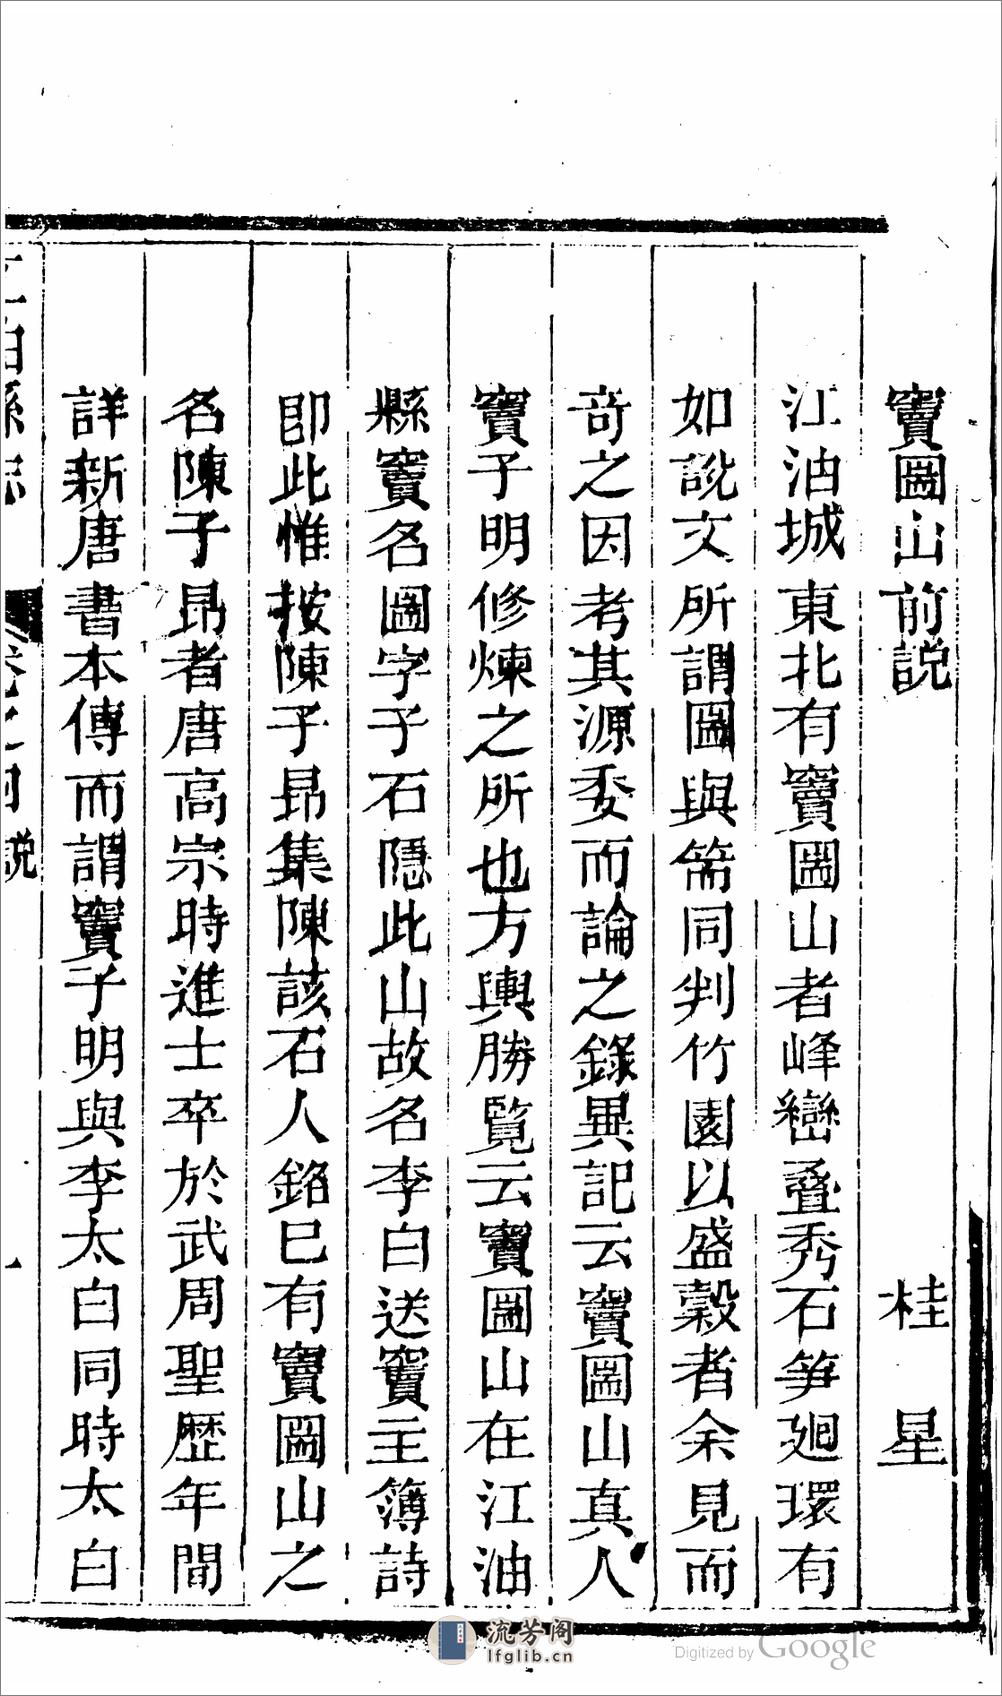 竇圌山前説 桂星
江油城東北有竇圌山者峰巒叠秀石笋廻環有
如說文所謂圌與篅同判竹圜以盛穀者余見而
奇之因考其源委而論之錄異記云竇圌山真人
竇子明修煉之所也方輿勝覽云竇圌山在江油
縣竇名圌字子石隱此山故名李白送竇主簿詩
即此惟按陳子昂集陳該石人銘已有竇圌山之
名陳子昂者唐高宗時進士卒於武周聖歴年間
詳新唐書本傳而謂竇子明與李太白同時太白
江油縣志 卷之四 説 一
流芳阁
lfglib.cn
Digitized by Google